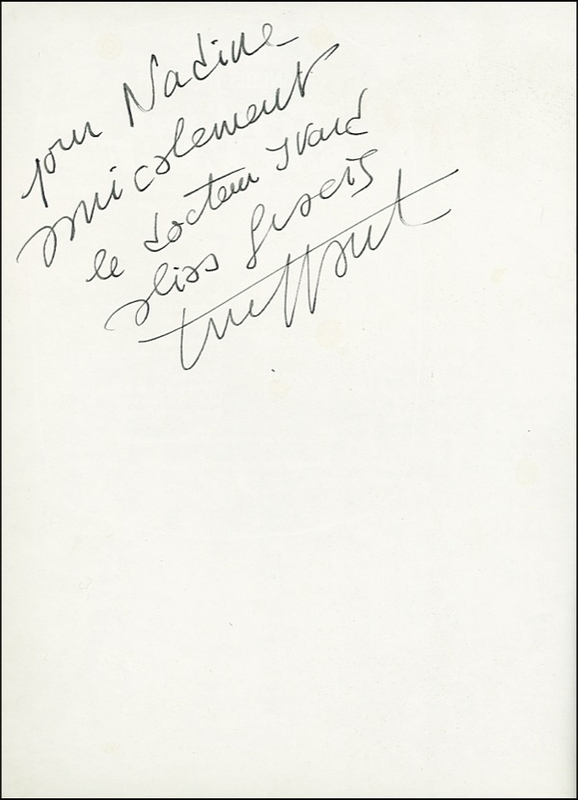 pour Nadine
amicalement
le docteur Itard
alias françois
truffaut